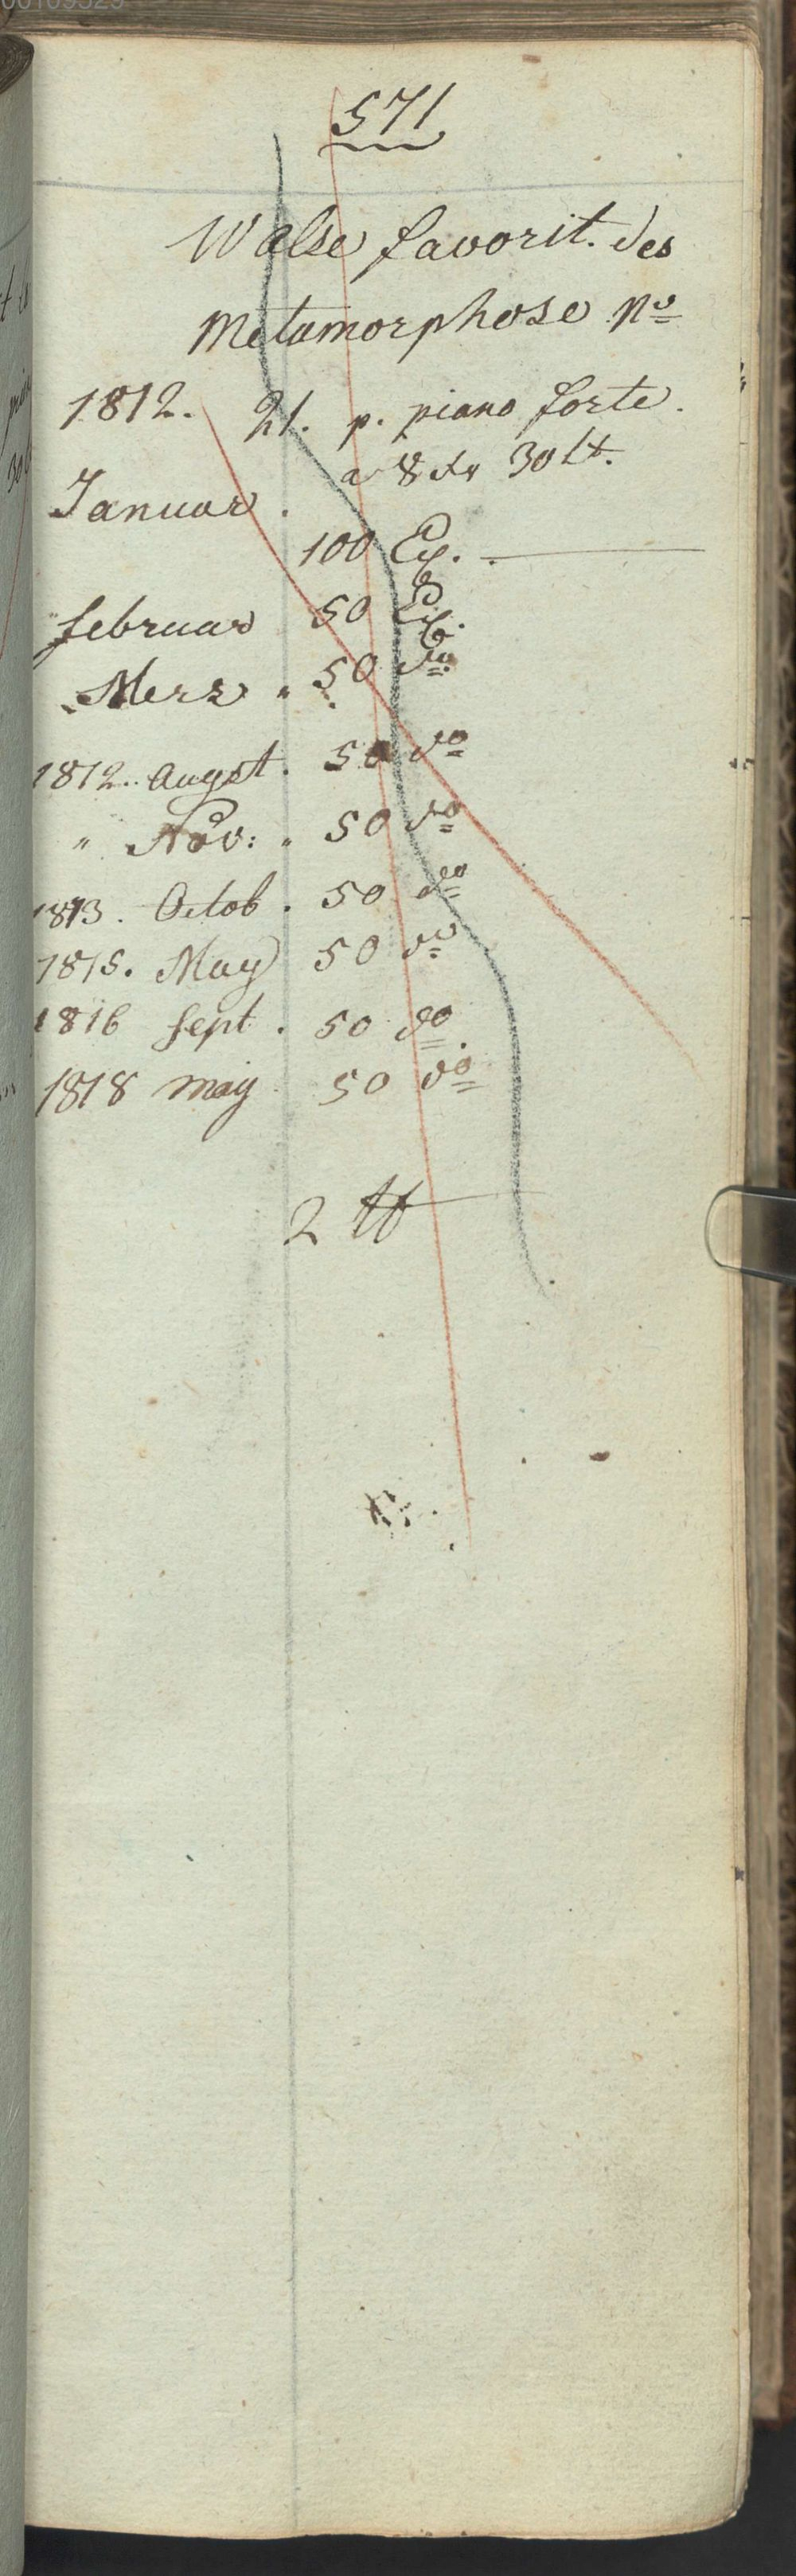 571
Walse favorit. des
Metamorphose No
1812. 21. p. piano forte.
a 8 xr 30 lt.
Januar.
100 Ex. .
februar 50 Ex.
Merz " 50 do
1812. Augst. 50 do
" Nov: " 50 do
1813. Octob. 50 do
1815. May 50 do
1816 Sept. 50 do
1818 may 50 do
2 ℔